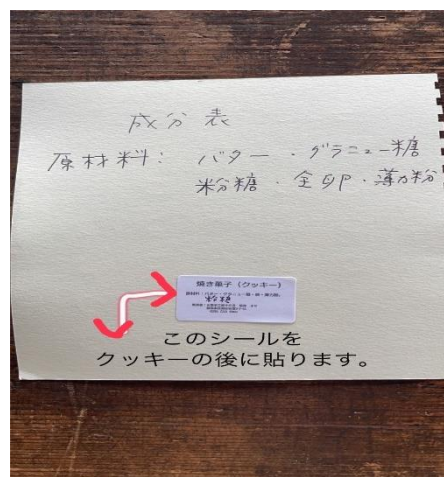 成分表
原材料： バター・グラニュー糖
粉糖・全卵・薄力粉
焼き菓子（クッキー）
粉糖
このシールを
クッキーの後に貼ります。